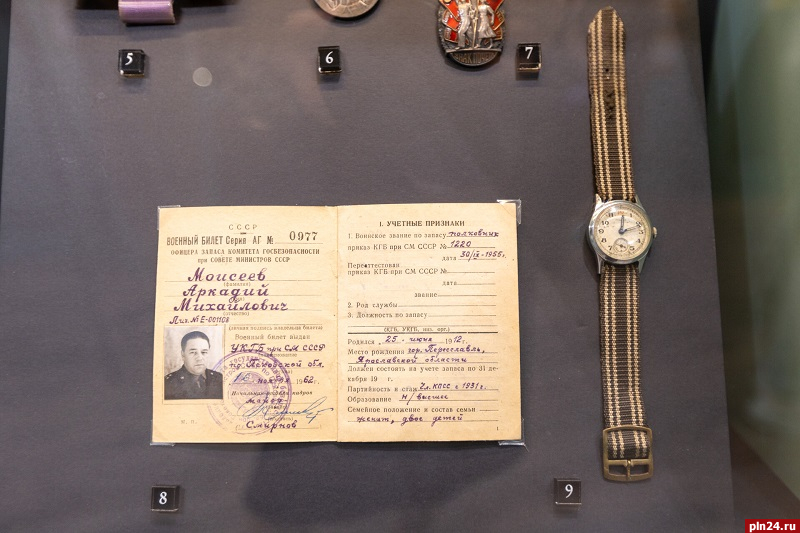 5
6
7
СССР
ВОЕННЫЙ БИЛЕТ Серия АГ № 0977
ОФИЦЕРА ЗАПАСА КОМИТЕТА ГОСБЕЗОПАСНОСТИ
при СОВЕТЕ МИНИСТРОВ СССР
Моисеев
(фамилия)
Аркадий
Михайлович
(отчество)
Л/н. № Е-001108
(личная подпись владельца билета)
Военный билет выдан
УКГБ при СМ СССР
по Псковской обл.
ноября 1962 г.
майор
Смирнов
М. П.
I. УЧЕТНЫЕ ПРИЗНАКИ
1. Воинское звание по запасу полковник
приказ КГБ при СМ СССР № 1220
дата 30/IX-1955г.
Переаттестован
приказ КГБ при СМ СССР №
дата
звание
2. Род службы
3. Должность по запасу
(КГБ, УКГБ, пог. орг.)
Родился 25 июня 1912г.
Место рождения гор. Переславль,
Ярославской области
Должен состоять на учете запаса по 31 де-
кабря 19 г.
Партийность и стаж Чл. КПСС с 1931г.
Образование н/высшее
Семейное положение и состав семьи
женат, двое детей
1
8
9
pln24.ru